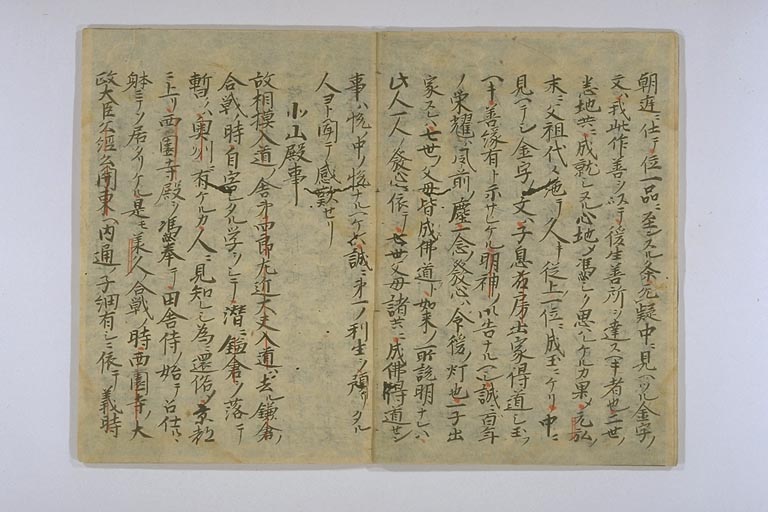 朝廷ニ仕テ位一品ニ至シスル条無疑中ニ見ヘツル金字ノ
文ハ我此作善ノ以テ後生善所ニ達スヘキ者也二世ノ
悉地共ニ成就シヌト心地ノ馮シク思ヘケルカ果メ元弘ノ
末ニ父祖代々絶テ久キ従上一位ニ成玉ヒケリ中ニ
見ヘテシ金字ノ文ハ子息右房出家得道シ玉フ
ヘキ善縁有ト示サセケル明神ノ御告ナルヘシ誠ニ百年
ノ栄耀ハ風前ノ塵一念ノ発心ハ命後ノ灯也一子出
家スレハ七世ノ父母皆成佛道ト如来ノ所説明ナレハ
此人一人ノ発心ニ依テ七世ノ父母諸共ニ成佛得道セシ
事ハ悦中ノ悦ナルヘケレハ誠ニ第一ノ利生ヲ預リタル
人ヨト聞テ感歎セリ
小山殿事
故相模入道ノ舎弟四郎左近大夫入道ハ去ル鎌倉ノ
合戦ノ時自害シタル学ヲシテ潜ニ鎌倉ヲ落テ
暫ハ奥州ニ有ケルカ人ニ見知レシ為ニ還俗メ京都
ニ上リ西園寺殿ヲ馮奉テ田舎侍ノ始テ召仕ルヽ
躰ニテソ居タリケル是モ承久合戦ノ時西園寺ノ大
政大臣公経公関東ヘ内通ノ子細有シニ依テ義時